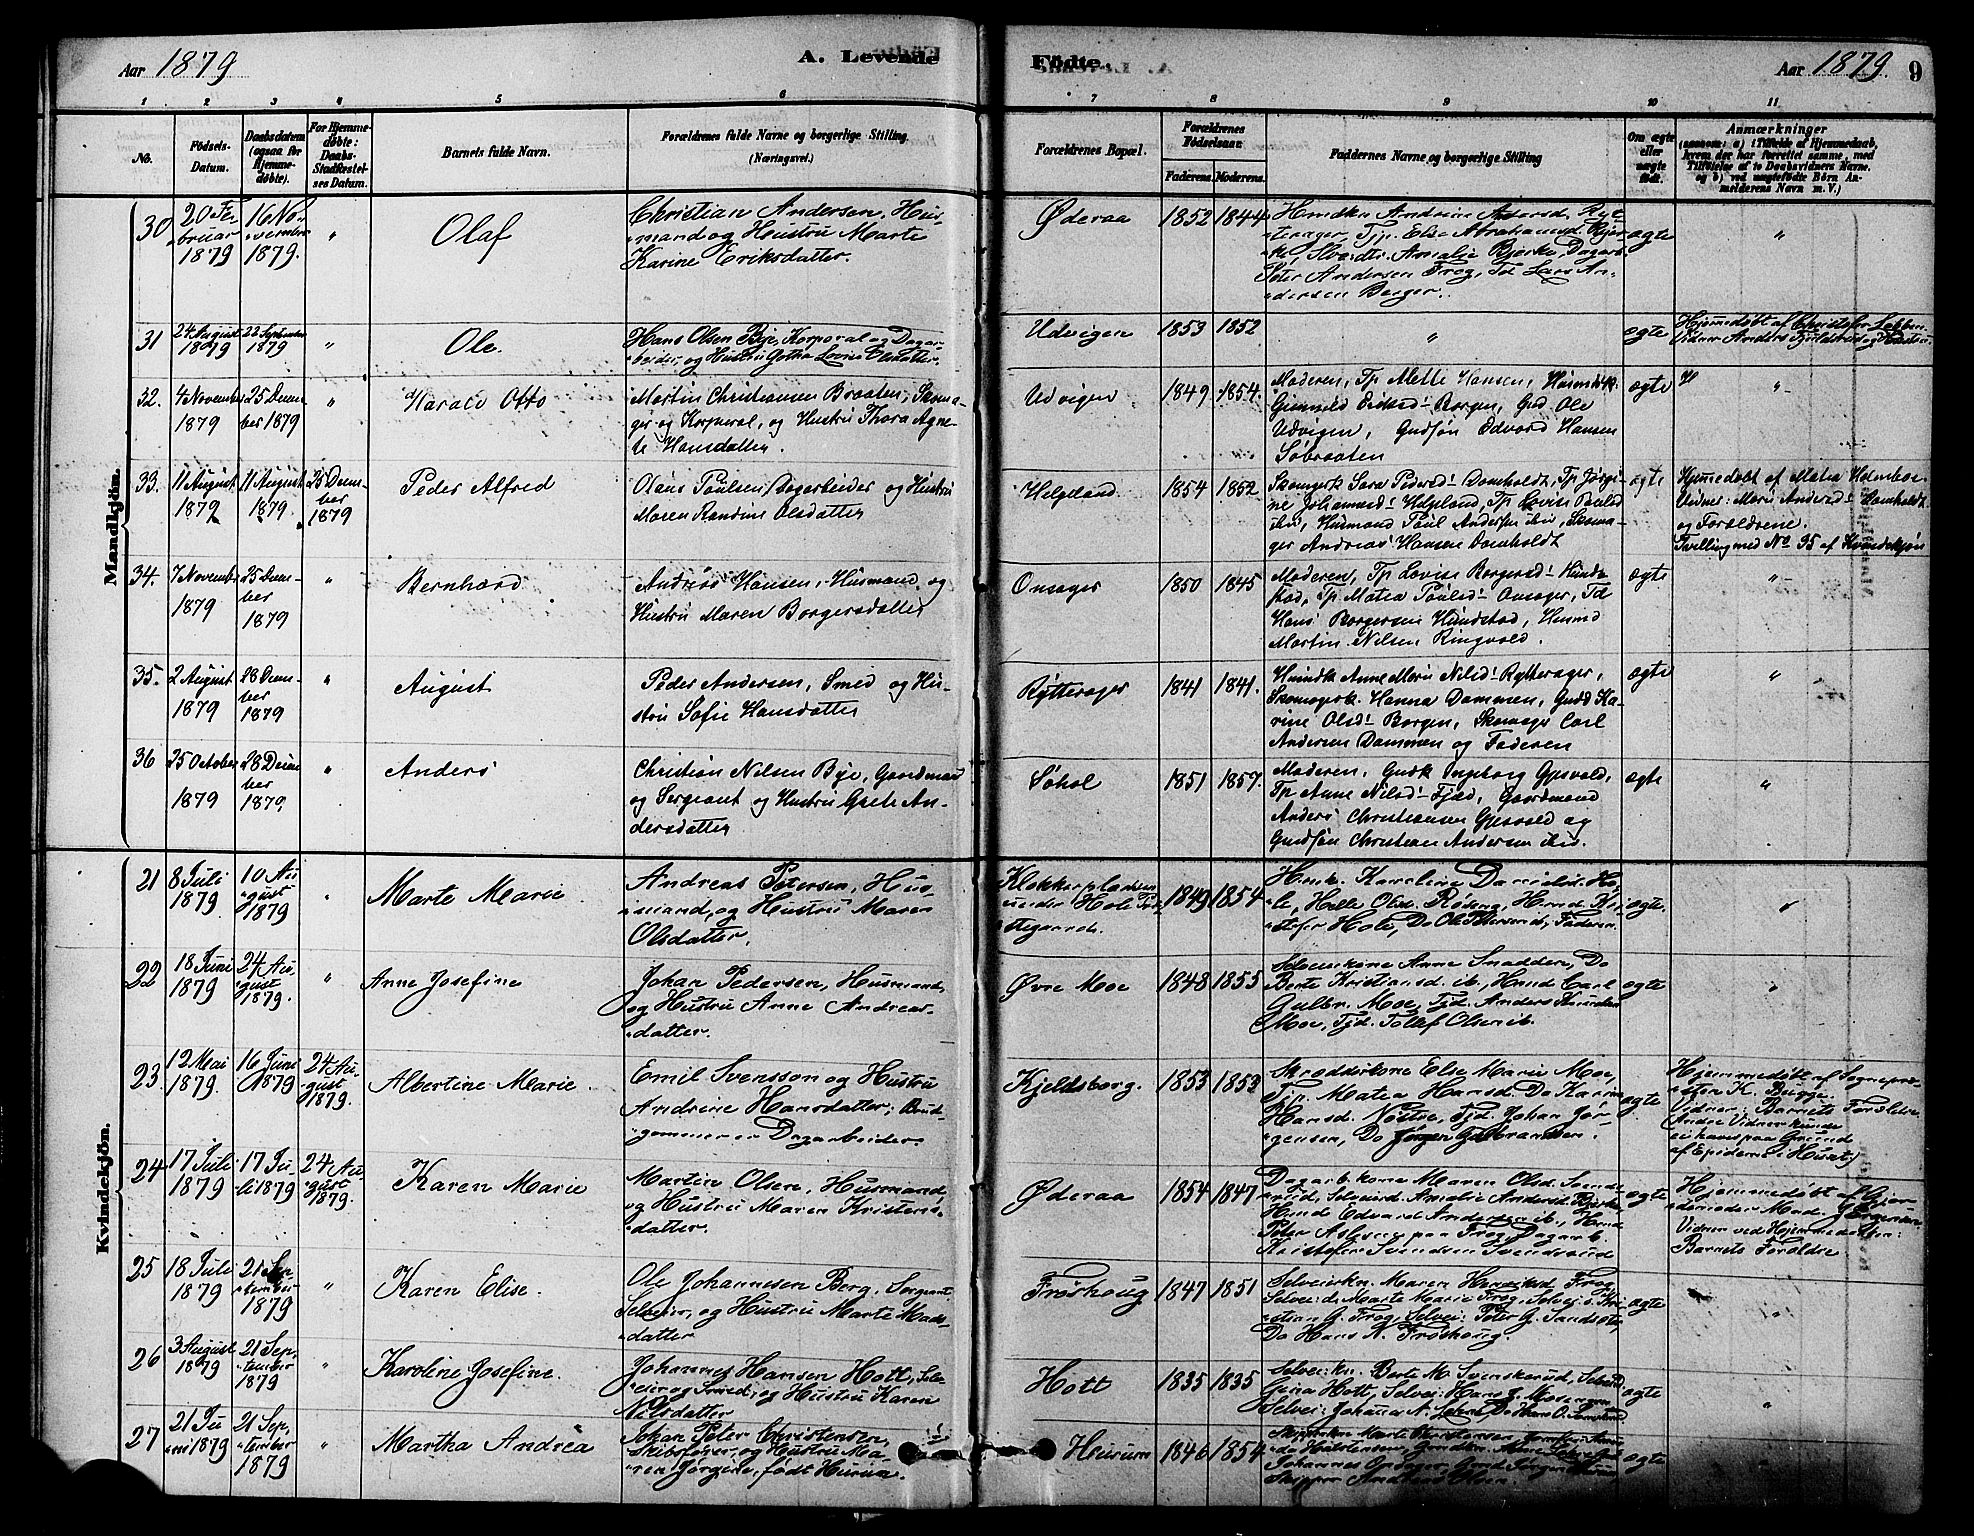 Aar 1879
A. Levende
Födte.
Aar 1879.
9
1 2 3 4 5 6 7 8 9 10 11
No.
Födsels-
Datum.
Daabsdatum
(ogsaa for
Hjemme-
döbte).
For Hjemme-
döbte:
Daabs-
Stadfæstel-
ses Datum.
Barnets fulde Navn.
Forældrenes fulde Navne og borgerlige Stilling.
(Næringsvei.)
Forældrenes Bopæl.
Forældrenes
Födselsaar.
Faderens. Moderens.
Faddernes Navne og borgerlige Stilling
Om ægte
eller
uægte
födt.
Anmærkninger
Mandkjön.
30
20 Fe-
bruar
1879
16 No-
vember
1879.
"
Olaf
Christian Andersen, Hus-
mand og Hustru Marte
Karine Eriksdatter.
Øderaa
1852 1844
Peter Andersen Frog, Td Lars An-
dersen Berger.
ægte
"
31
24 August
1879
22 September
1879
"
Ole.
Hans Olsen Bye, Korporal og Dagar-
beider, og Hustru
Udvigen
1853 1852
"
ægte
Hjemmedøbt af Christofer
32.
4 November
1879
25 Decem-
ber 1879
"
Harald Otto
Martin Christiansen Braaten, Skoma-
ger og Korporal, og Hustru Thora Agne-
te Hansdatter.
Udvigen
1849 1854.
Moderen, Tp Mette Hansen,
Borgen, Gud Ole
Udvigen, Gudsøn Edvard Hansen
Søbraaten
ægte
"
33.
11 August
1879
11 August
1879.
25 Decem-
ber
1879
Peder Alfred
Olaus Paulsen, Dagarbeider og Hustru
Maren Randine Olsdatter
Helgeland
1854 1852
Skomgerk Sara Pedersd! Domholdt, Tp Jørgi-
ne Johannesd! Helgeland, Tp Lovise Paulsd
ibu, Husmand Paul Andersen ibu, Skoma-
ger Andreas Hansen Domholdt
ægte
Hjemmedøbt af Matea Holmboe
Vidner: Mari Andersd! Domholdt
og Forældrene.
Tvilling med No 35 af Kvindekjøn
34.
7 November
1879
25 Decem-
ber
1879
"
Bernhard
Andreas Hansen, Husmand og
Hustru Maren Borgersdatter
Onsager
1850 1845
Moderen, Tp Lovise Borgersd! Hund-
stad, Tp Matea Paulsd! Onsager, Td
Hans Borgersen Hundstad, Husmd
Martin Nilsen Ringvold.
ægte
"
35.
2 August
1879
28 Decem-
ber
1879
"
August
Peder Andersen, Smed og Hu-
stru Sofie Hansdatter
Rytterager
1841 1841.
Husmdk Anne Marie Nilsd! Rytterager,
Skomagerk. Hanna Dammen, Gudd Ka-
rine Olsd! Borgen, Skomager Carl
Andersen Dammen og Faderen
ægte
"
36
25 October
1879
28 Decem-
ber
1879.
"
Anders
Christian Nilsen Bye, Gaardmand
og Sergeant og Hustru Grete An-
dersdatter
Søhol
1851 1857.
Moderen, Gudk Ingeborg Gjesvold,
Tp Anne Nilsd! Fjeld, Gaardmand
Anders Christiansen Gjesvold og
Gudsøn Christian Andersen ibu.
ægte
"
Kvindekjön.
21
8 Juli
1879
10 Au-
gust
1879
"
Marte Marie
Andreas Petersen, Hus-
mand, og Hustru Maren
Olsdatter.
Klokkerpladsen
under Hole Præ-
stegaard.
1849 1854
Hmk. Karoline Danielsd. Ho-
le, Helle Olsd. Röseng, Hmd Kri-
stofer Hole, Do Ole Petersen ib, Faderen.
ægte.
"
22
18 Juni
1879
24 Au-
gust
1879.
"
Anne Josefine
Johan Pedersen, Husmand,
og Hustru Anne Andreas-
datter.
Øvre Moe
1848 1855
Selveierkone Anne Snadden, Do
Berte Kristiansd. ib, Hmd Carl
Gulbr. Moe, Tjd. Anders Knudsen
Moe, Tjd. Tollef Olsen ib.
ægte
"
23.
12 Mai
1879
16 Juni
1879
24 Au-
gust
1879.
Albertine Marie
Emil Svensson og Hustru
Andrine Hansdatter; Brud-
gommen er Dagarbeider
Kjeldsborg.
1853 1853
Skrædderkone Else Marie Moe,
Tjp. Matea Hansd. Do Karen
Hansd. Nöstve, Tjd. Johan Jör-
gensen, Do Jörgen Gulbrandsen.
ægte
Hjemmedöbt af Sognepræ-
sten K. Bugge.
Vidner: Barnets Forældre
Andre Vidner kunde
ei haves paa Grund
af Epidemi i Huset)
24
17 Juli
1879
17 Ju-
li 1879
24 Au-
gust
1879.
Karen Marie
Martin Olsen, Husmand,
og Hustru Maren Kristens-
datter.
Øderaa
1854 1847
Dagarb. kone Maren Olsd. Svende-
rud, Selveierd. Amalie Andersd.
Hmd Edvard Andersen ib.,
Peter Aslesen paa Frog, Dagarb.
Kristofer Svendsen Svendsrud
ægte
Hjemmedöbt af Gjor-
demoder Mad. Jörgensen
Vidner ved Hjemmedaaben:
Barnets Forældre
25
18 Juli
1879
21 Sep-
tember
1879
"
Karen Elise.
Ole Johannesen Berg, Sergeant,
Selveier, og Hustru Marte Mads-
datter
Fröshoug
1847 1851
Selveierkn. Maren Henriksd. Frog
Selveierd. Marte Marie Frog, Selveiers. Kri-
stian G. Frog, Selvei: Peter G.
Do Hans N. Fröshoug.
ægte
"
26
3 August
1879
21 Sep-
tember
1879
"
Karoline Josefine.
Johannes Hansen Hott, Selv-
eier og Smed, og Hustru Karen
Nilsdatter
Hott
1835 1835
Selvei: kn. Berte M. Svenskerud,
Gina Hott, Selvei: Hans G. Mosengen
Selvei: Johannes N.
ægte
"
27
21 Ju-
ni 1879
21 Sep-
tember
1879
"
Martha Andrea
Johan Peter Christensen,
Skibsfører, og Hustru Ma-
ren Jörgine, født Hurum.
Hurum
1846 1854
Johannes Onsager,
Skipper Andreas Olsen
ægte